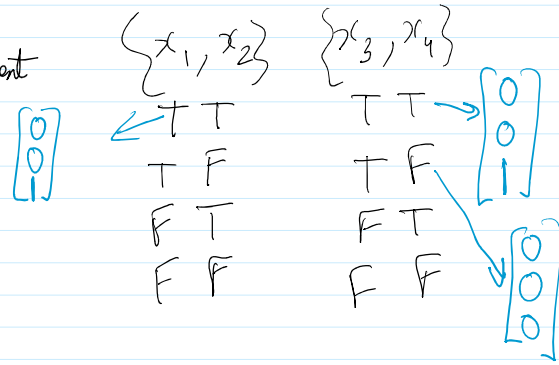 {x₁, x₂} {x₃, x₄}
T T T T
T F T F
F T F T
F F F F
[0 0 1]
[0 0 1]
[0 0 0]